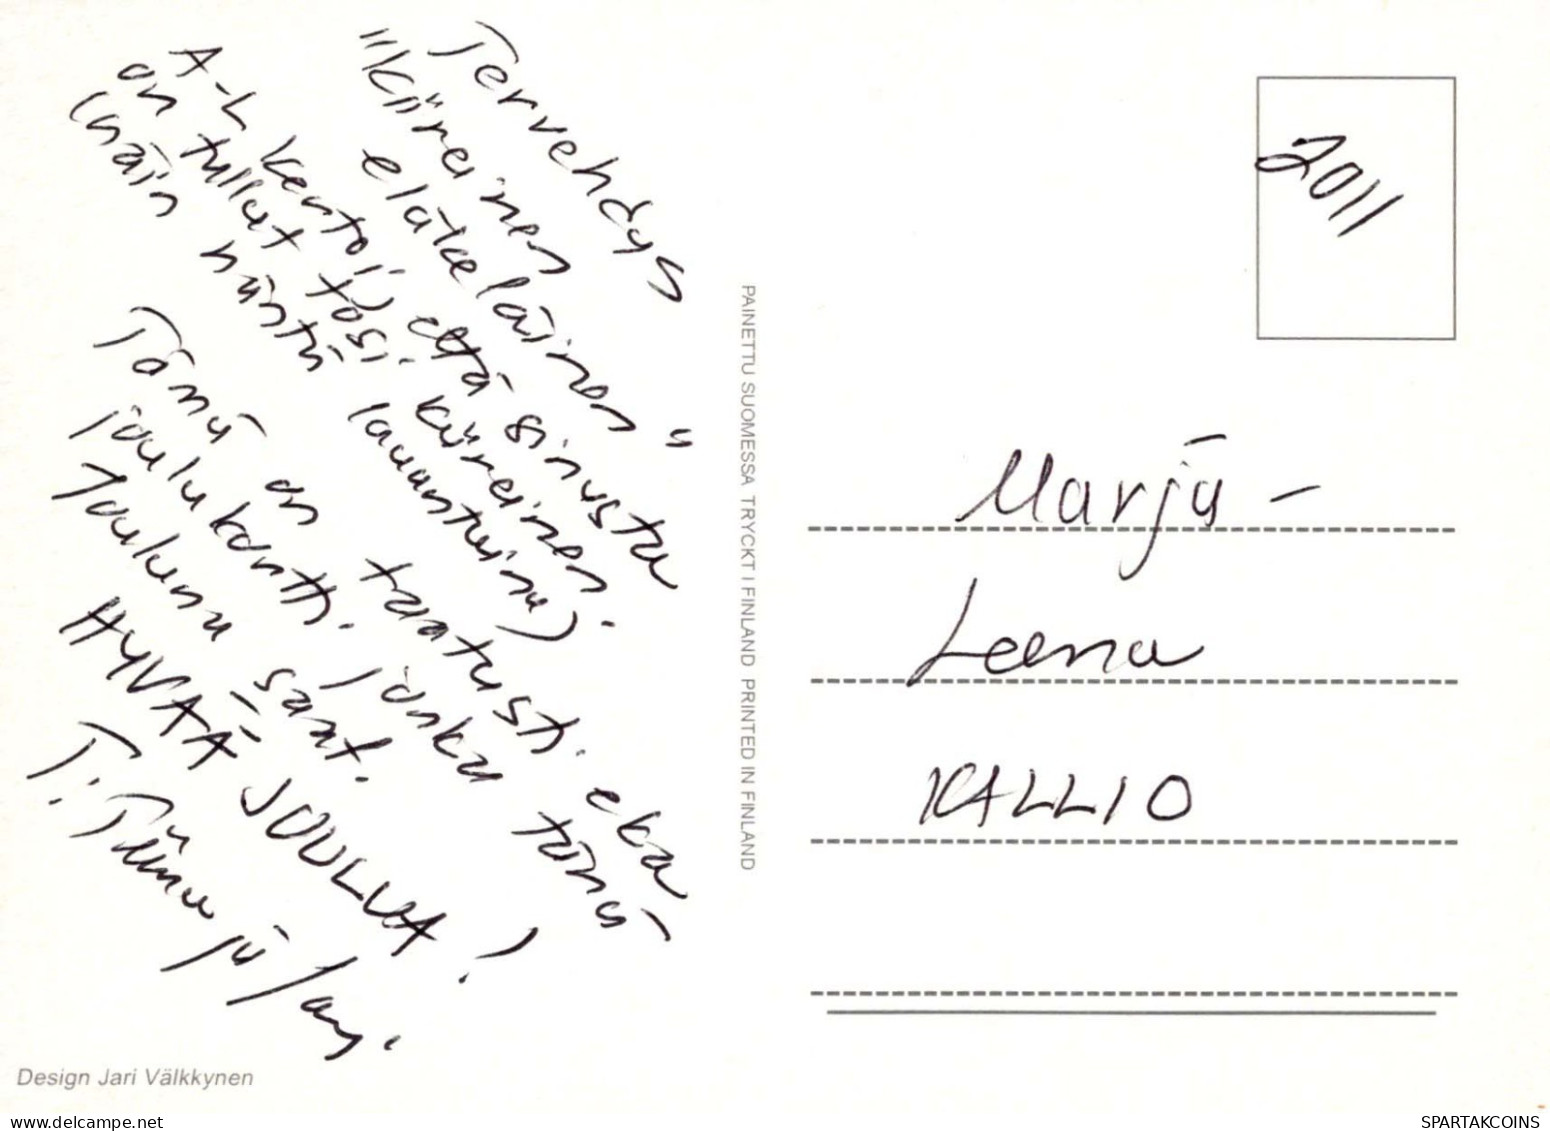 Tervehdys
"kiireinen
eläkeläinen"
A-L kertoi, että sinusta
on tullut tosi kiireinen.
(näin niinkö lauantaina)
Tämä on taatusti eka
joulukortti. Jonka tänä
Jouluna saat.
HYVÄÄ JOULUA!
T. Tiina ja Jari.
2011
Marja-
Leena
KALLIO
PAINETTU SUOMESSA TRYCKT I FINLAND PRINTED IN FINLAND
Design Jari Välkkynen
SPARTAKCOINS